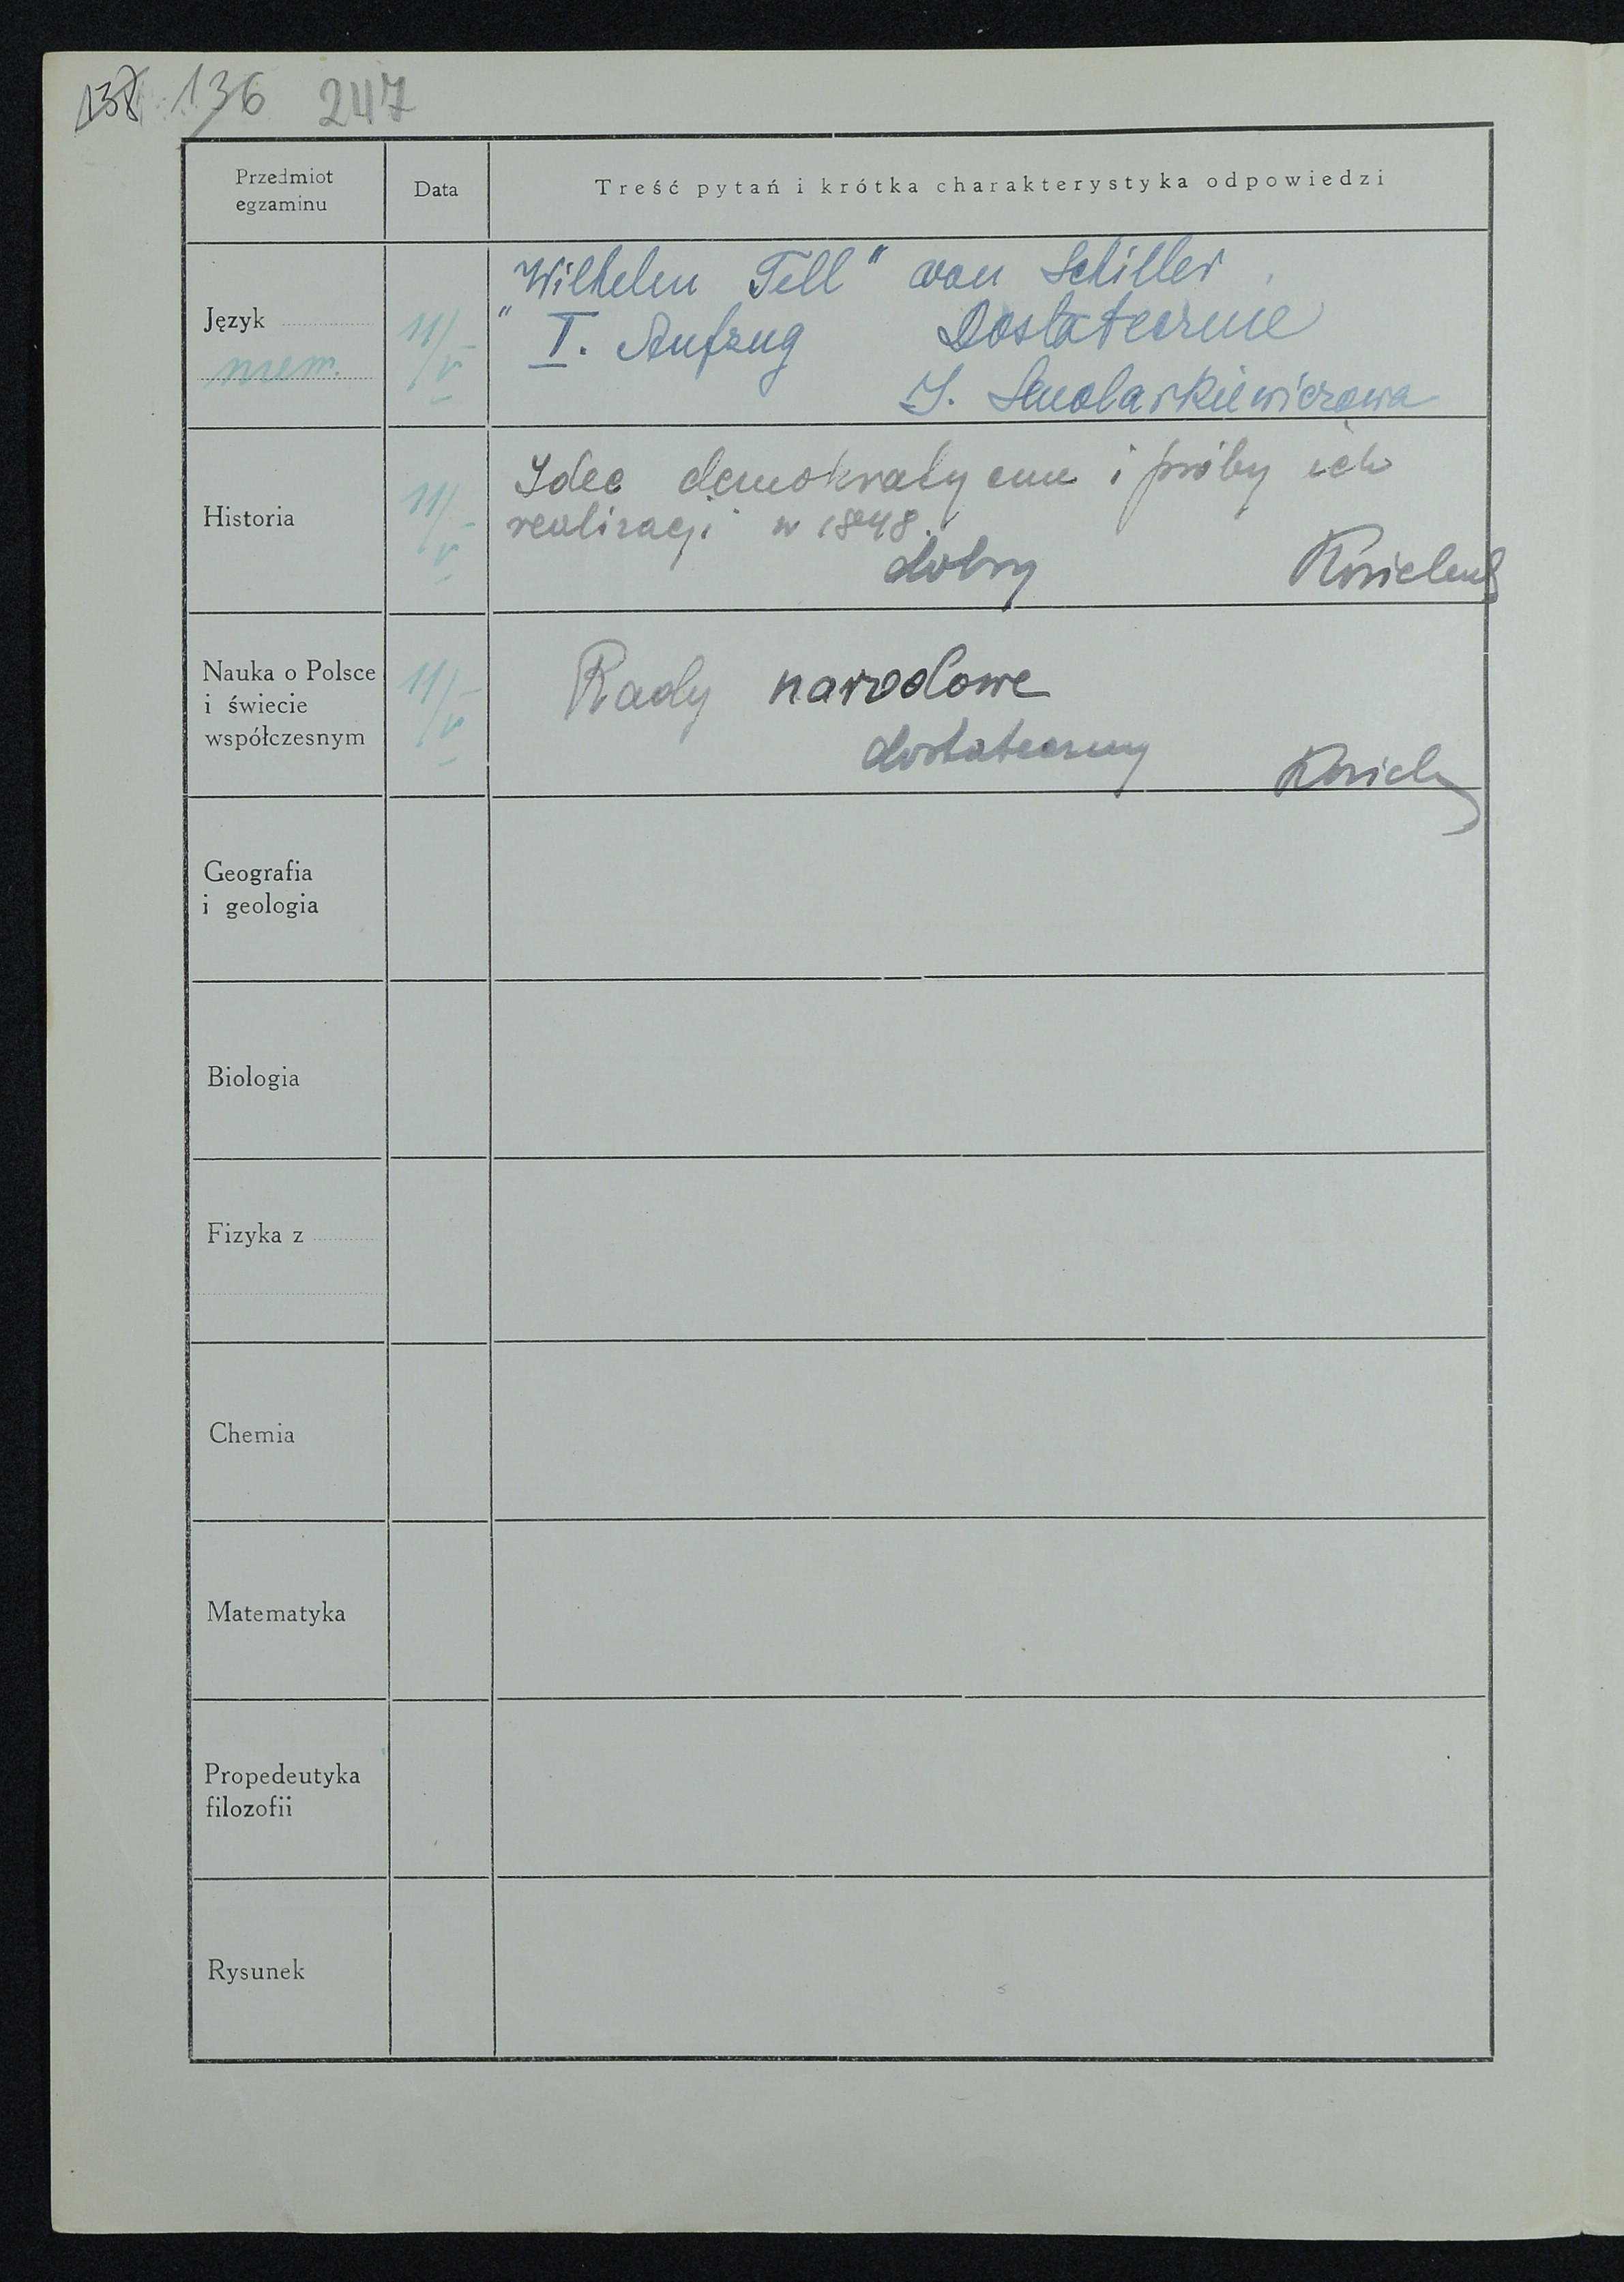 136 247
Przedmiot
egzaminu
Data
Treść pytań i krótka charakterystyka odpowiedzi
Język
niem.
11/V
"Wilhelm Tell" von Schiller
I. Aufzug Dostatecznie
J. Smolarkiewiczowa
Historia
11/V
Idee demokratyczne i próby ich
realizacji w 1848.
dobry
Nauka o Polsce
i świecie
współczesnym
11/V
Rady narodowe
dostateczny
Geografia
i geologia
Biologia
Fizyka z
Chemia
Matematyka
Propedeutyka
filozofii
Rysunek